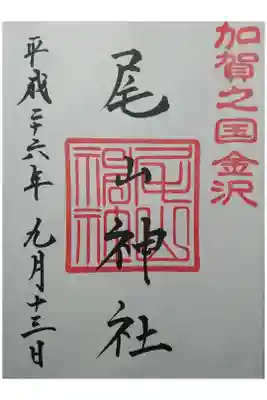 加賀之国金沢
尾山神社
平成二十六年 九月十三日